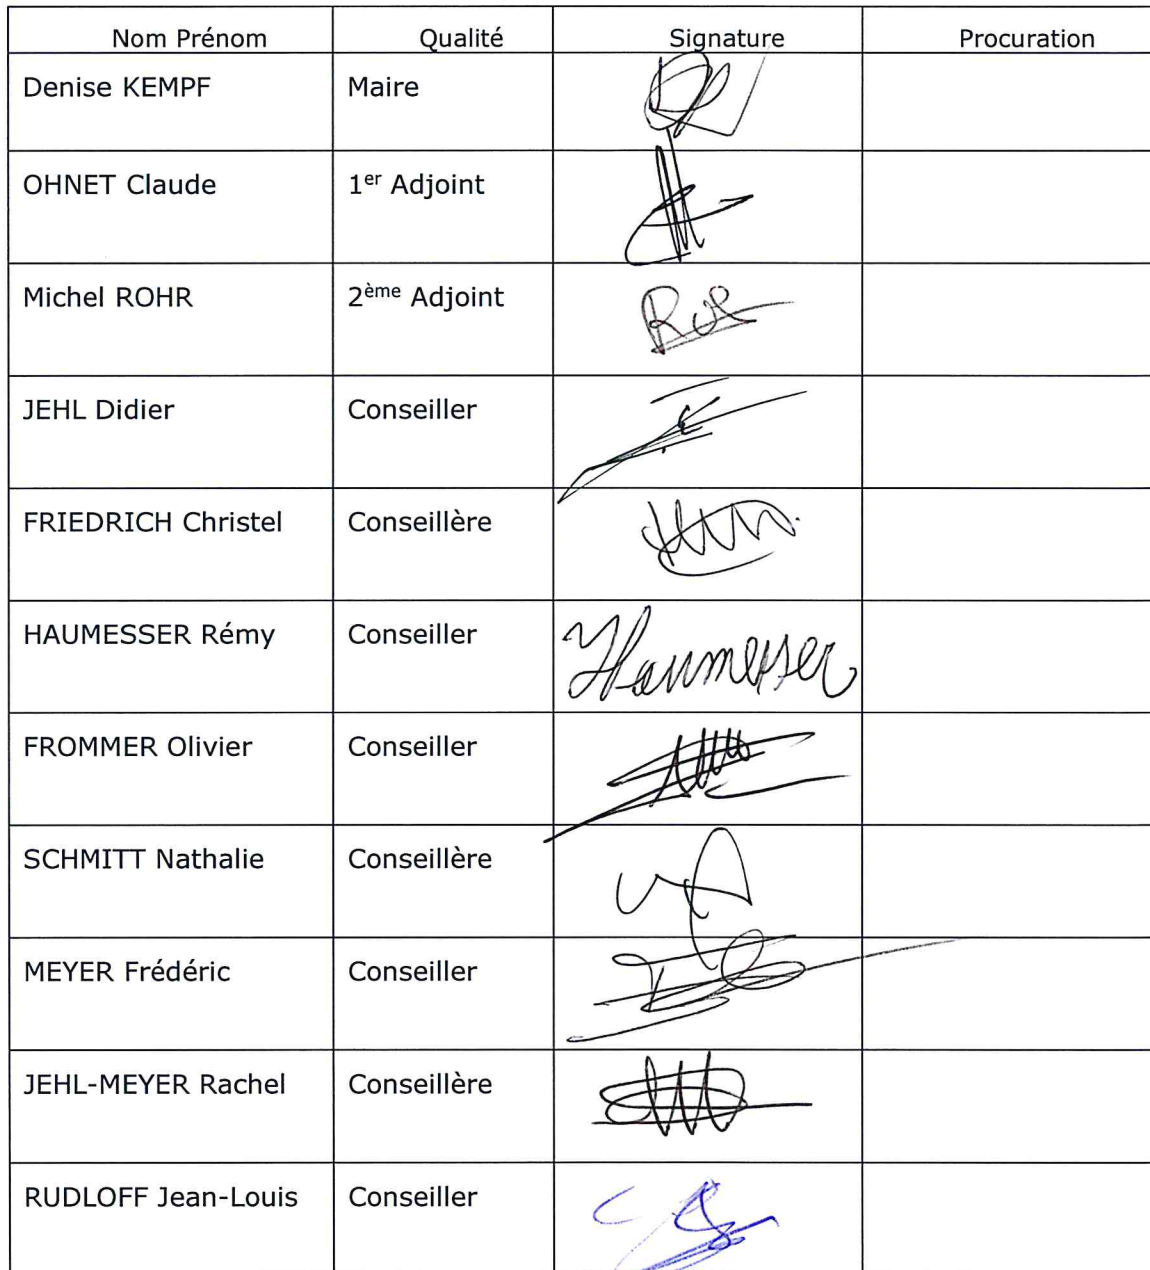 Nom Prénom Qualité Signature Procuration
Denise KEMPF Maire
OHNET Claude 1er Adjoint
Michel ROHR 2ème Adjoint
JEHL Didier Conseiller
FRIEDRICH Christel Conseillère
HAUMESSER Rémy Conseiller Haumesser
FROMMER Olivier Conseiller
SCHMITT Nathalie Conseillère
MEYER Frédéric Conseiller
JEHL-MEYER Rachel Conseillère
RUDLOFF Jean-Louis Conseiller